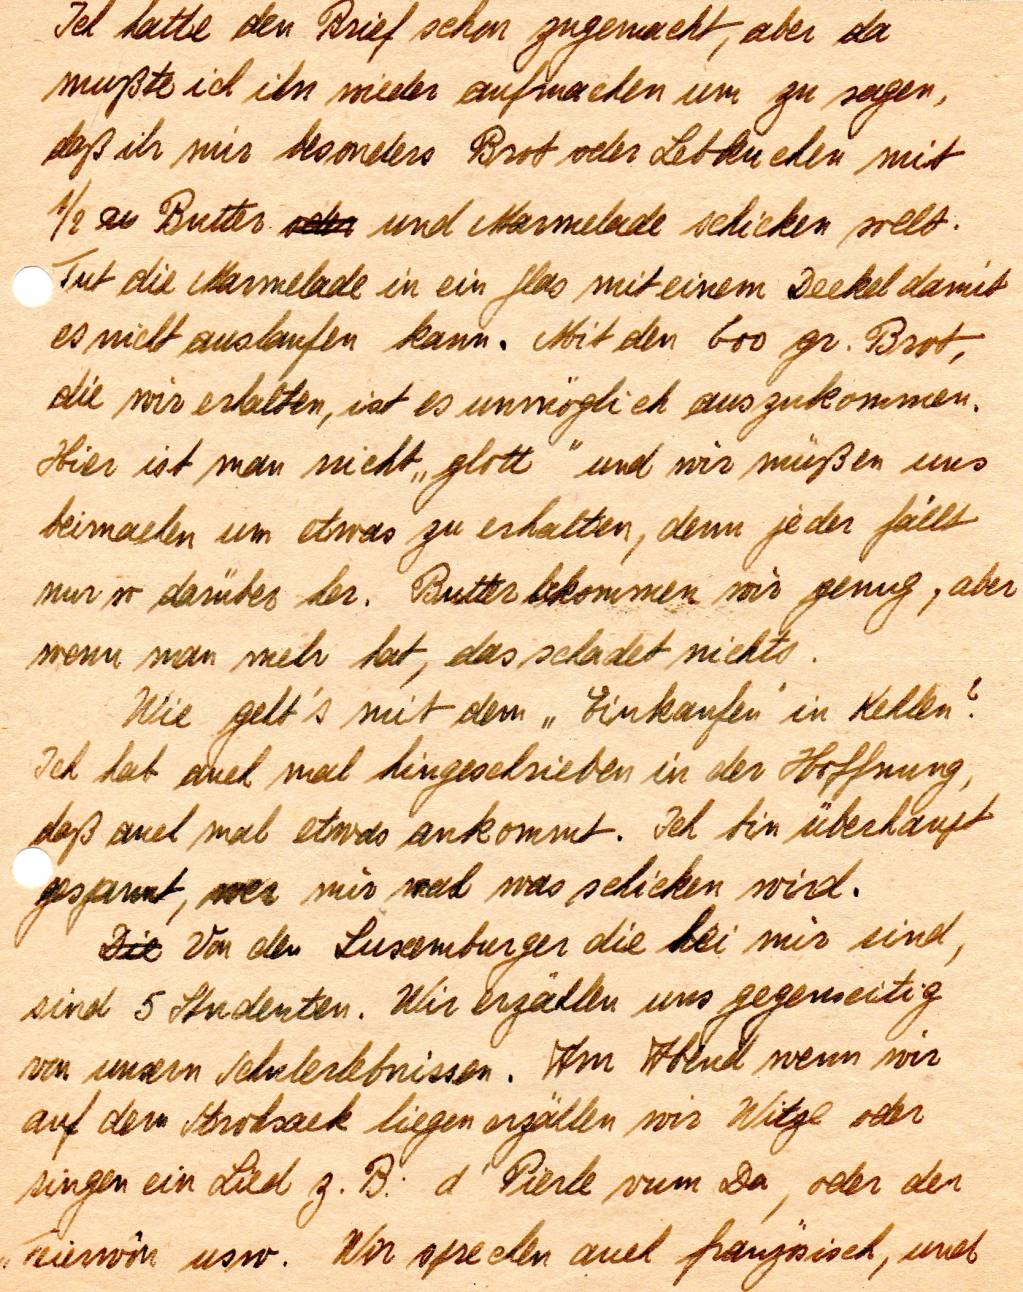 Ich hatte den Brief schon zugemacht, aber da
mußte ich ihn wieder aufmachen um zu sagen,
daß ihr mir besonders Brot oder Lebkuchen mit
1/2 Butter oder und Marmelade schicken sollt.
Tut die Marmelade in ein Glas mit einem Deckel damit
es nicht auslaufen kann. Mit den 600 gr. Brot,
die wir erhalten, ist es unmöglich auszukommen.
Hier ist man nicht „glott" und wir müßen uns
beimachen um etwas zu erhalten, denn jeder fällt
nur so darüber her. Butter bekommen wir genug, aber
wenn man mehr hat, das schadet nichts.
Wie geht's mit dem „Einkaufen" in Kehlen?
Ich hab auch mal hingeschrieben in der Hoffnung,
daß auch mal etwas ankommt. Ich bin überhaupt
gespannt, wer mir mal was schicken wird.
Die Von den Luxemburger die bei mir sind,
sind 5 Studenten. Wir erzählen uns gegenseitig
von unsern Schulerlebnissen. Am Abend wenn wir
auf dem Strohsack liegen erzählen wir Witze oder
singen ein Lied z. B. d'Pierle vum Da, oder der
usw. Wir sprechen auch französisch, und